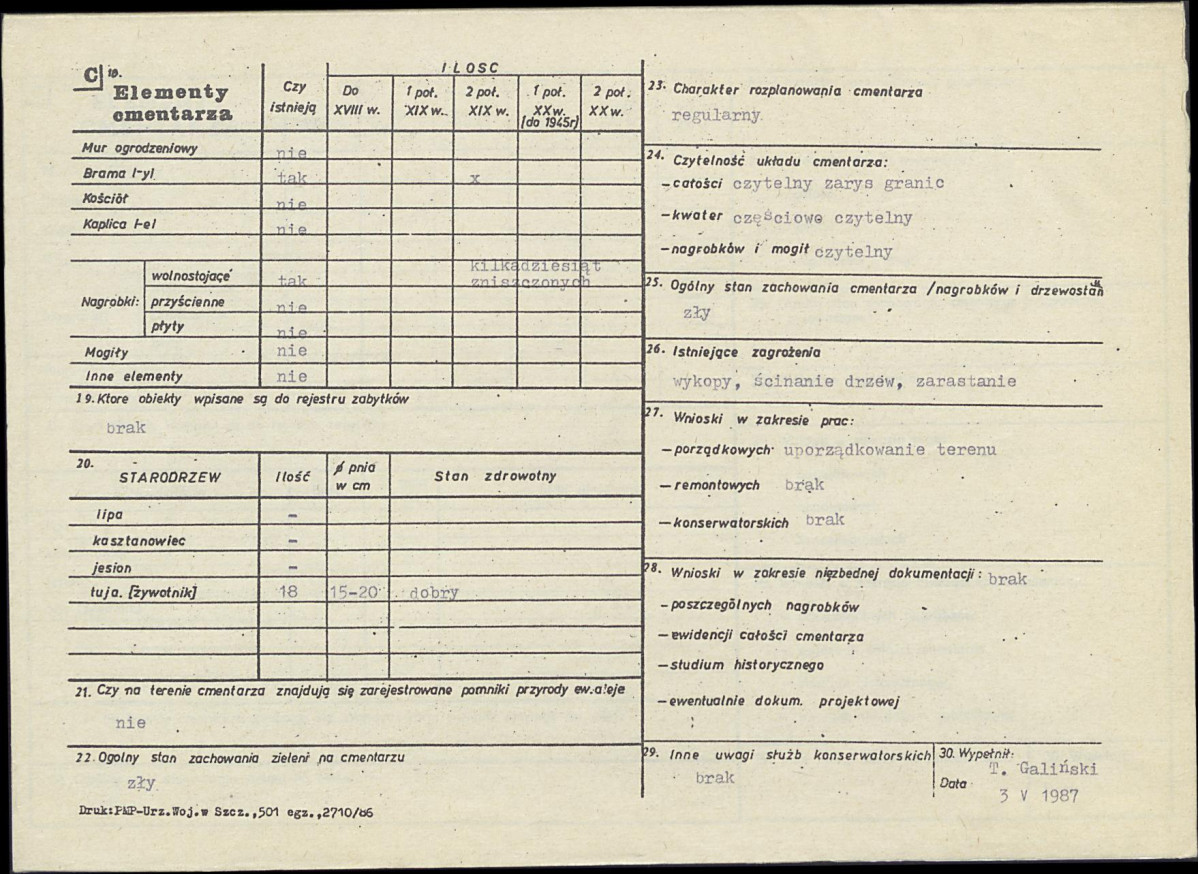 C 18.
Elementy cmentarza
Czy istnieją
ILOSC
Do XVIII w.
1 poł. XIX w.
2 poł. XIX w.
1 poł. XX w. (do 1945r)
2 poł. XX w.
Mur ogrodzeniowy nie
Brama /-y/ tak x
Kościół nie
Kaplica /-e/ nie
Nagrobki:
wolnostojące tak kilkadziesiąt zniszczonych
przyścienne nie
płyty nie
Mogiły nie
Inne elementy nie
19. Ktore obiekty wpisane są do rejestru zabytków
brak
20. STARODRZEW Ilość ø pnia w cm Stan zdrowotny
lipa –
kasztanowiec –
jesion –
tuja. [żywotnik] 18 15-20 dobry
21. Czy na terenie cmentarza znajdują się zarejestrowane pomniki przyrody ew. aleje
nie
22. Ogolny stan zachowania zieleni na cmentarzu
zły
Druk:PMP-Urz.Woj.w Szcz.,501 egz.,2710/86
23. Charakter rozplanowania cmentarza
regularny
24. Czytelność układu cmentarza:
– całości czytelny zarys granic
– kwater częściowo czytelny
– nagrobków i mogił czytelny
25. Ogólny stan zachowania cmentarza /nagrobków i drzewostanu
zły
26. Istniejące zagrożenia
wykopy, ścinanie drzew, zarastanie
27. Wnioski w zakresie prac:
– porządkowych uporządkowanie terenu
– remontowych brak
– konserwatorskich brak
28. Wnioski w zakresie niezbednej dokumentacji: brak
– poszczególnych nagrobków
– ewidencji całości cmentarza
– studium historycznego
– ewentualnie dokum. projektowej
29. Inne uwagi służb konserwatorskich
brak
30. Wypełnił:
T. Galiński
Data
3 V 1987